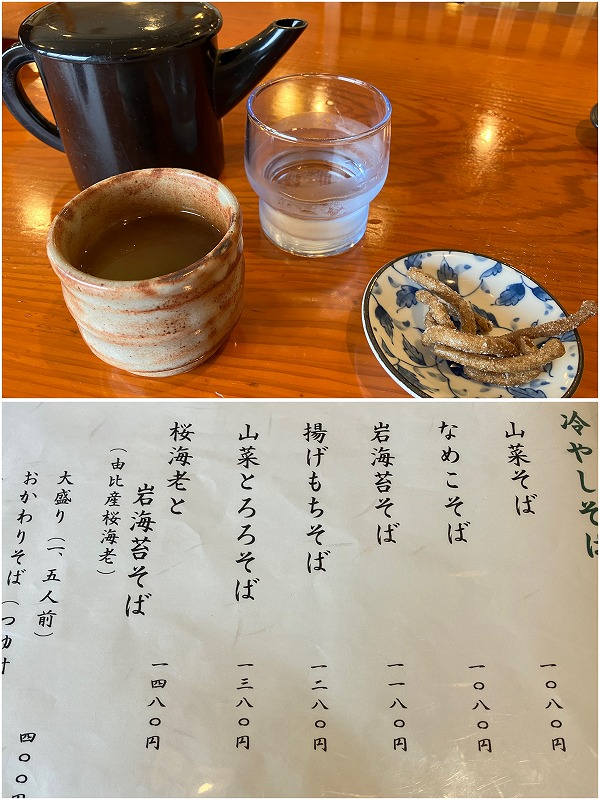 冷やしそば
山菜そば
一〇八〇円
なめこそば
一〇八〇円
岩海苔そば
一一八〇円
揚げもちそば
一二八〇円
山菜とろろそば
一三八〇円
桜海老と
岩海苔そば
一四八〇円
（由比産桜海老）
大盛り（一、五人前）
おかわりそば（つゆ付
四〇〇円